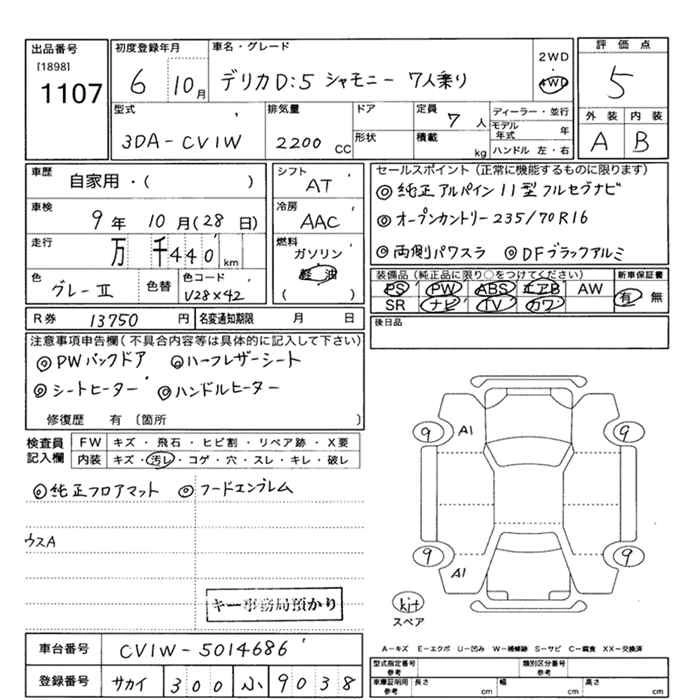 出品番号 初度登録年月 車名・グレード 2WD ・ 4WD 評価点
[1898]
1107 6 10月 デリカD:5 シャモニー 7人乗り 5
型式 排気量 ドア 定員 7人 ディーラー・並行 外装 内装
3DA-CV1W 2200 CC 形状 積載 kg モデル年式 年 A B
ハンドル 左・右
車歴 自家用・( ) シフト AT セールスポイント (正常に機能するものに限ります)
◎純正アルパイン11型フルセグナビ
車検 9年 10月(28日) 冷房 AAC ◎オープンカントリー235/70R16
走行 万 千440km 燃料 ガソリン 軽油 ( ) ◎両側パワスラ ◎DFブラックアルミ
色 グレーII 色替 色コード U28×42 装備品 (純正品に限り○をつけてください) 新車保証書
PS PW ABS エアB AW 有 無
SR ナビ TV カワ
R券 13750円 名変通知期限 月 日 後日品
注意事項申告欄(不具合内容等は具体的に記入して下さい)
◎PWバックドア ◎ハーフレザーシート
◎シートヒーター ◎ハンドルヒーター
修復歴 有 〔箇所 〕
検査員記入欄 FW キズ・飛石・ヒビ割・リペア跡・X要
内装 キズ・汚レ・コゲ・穴・スレ・キレ・破レ
◎純正フロアマット ◎フードエンブレム
9 A1 9
ウスA
9 A1 9
キー事務局預かり
kit
スペア
車台番号 CV1W-5014686
A-キズ E-エクボ U-凹み W-補修跡 S-サビ C-腐食 XX-交換済
登録番号 サカイ 300 ふ 9038
型式指定番号 参考 類別区分番号 参考
車庫証明用 参考 長さ cm 幅 cm 高さ cm